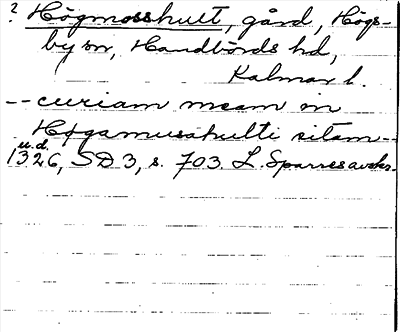 ? Högmosshult, gård, Högs-
by sn, Handbörds hd,
Kalmar l.
-- curiam meam in
Høgamusahulti sitam --
u.d.
1326, SD 3, s. 703. L. Sparres avskr.